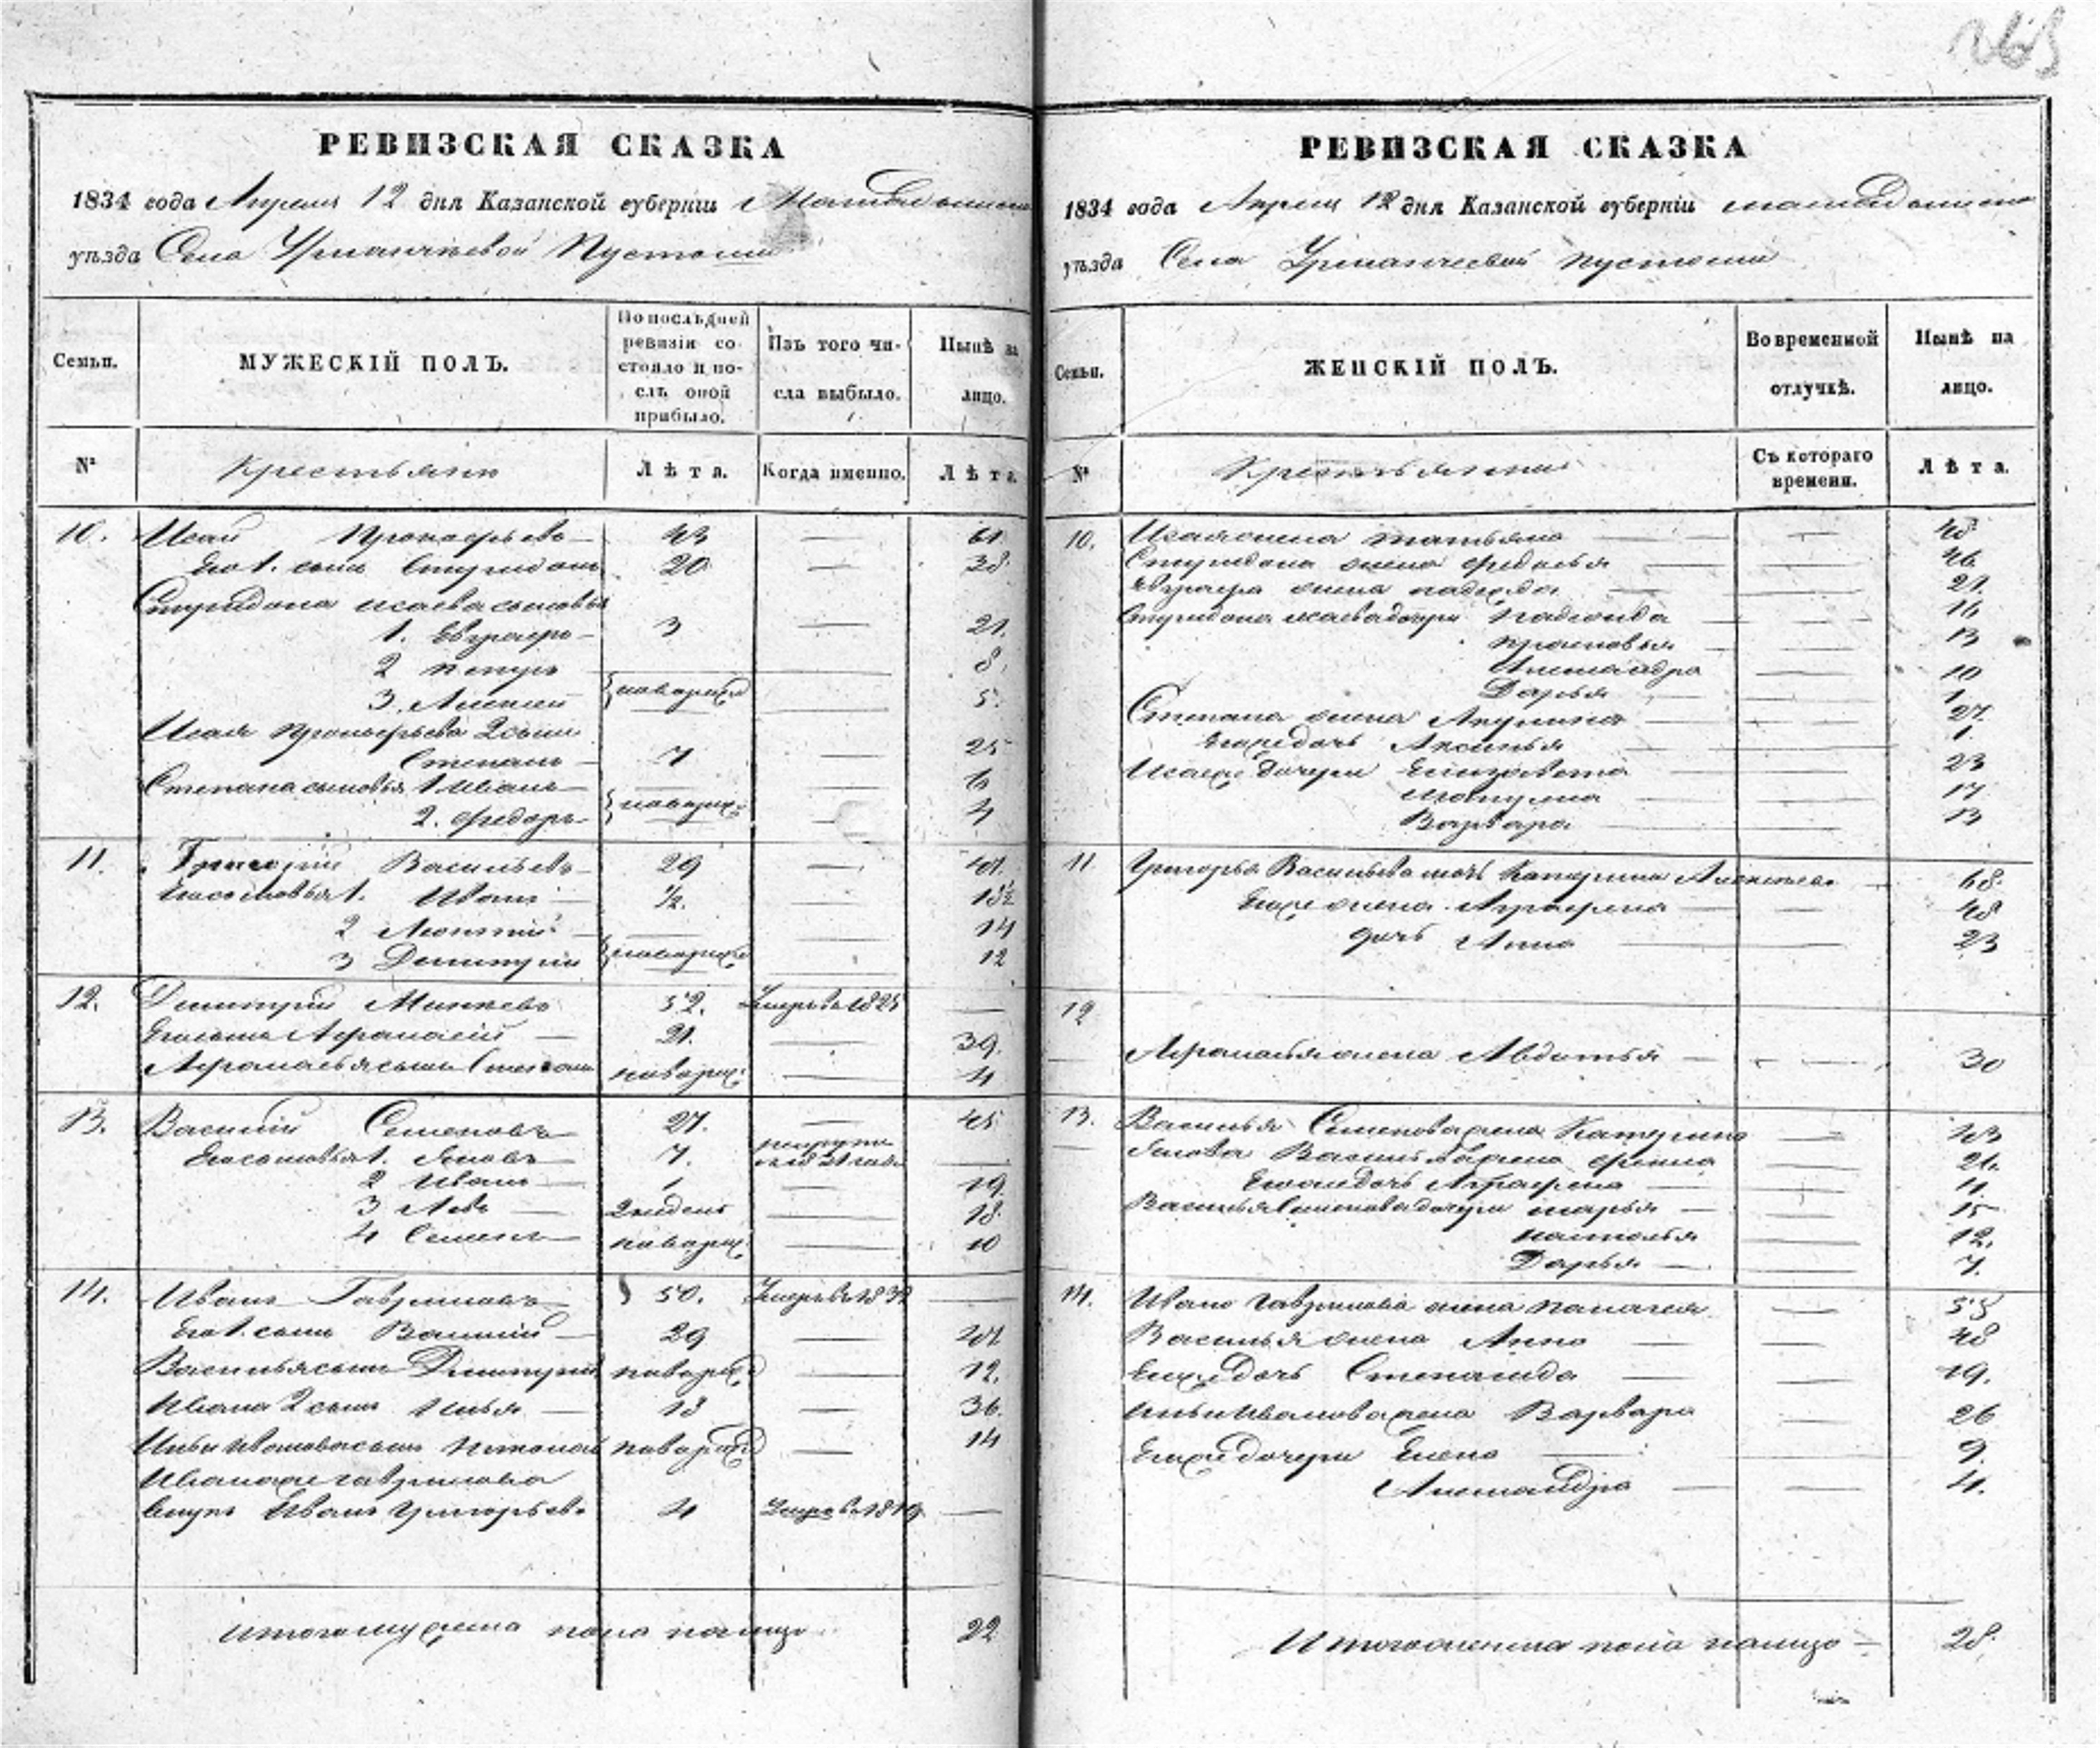 263
РЕВИЗСКАЯ СКАЗКА
1834 года Апреля 12 дня Казанской губерніи
уѣзда Села Урманчеевой Пустоши
Семьи.
МУЖЕСКІЙ ПОЛЪ.
По послѣдней ревизіи состояло и послѣ оной прибыло.
Изъ того числа выбыло.
Нынѣ на лицо.
№
Крестьяне
Лѣта.
Когда именно.
Лѣта.
10. Исай Прокофьевъ — 43 — 61.
Его 1. сынъ Спиридонъ 20 — 38.
Спиридона Исаева сыновья
1. Евграфъ — 3 — 21.
2 Петръ — 8.
3. Алексей новорожд — 5.
Исая Прокофьева 2 сынъ
Степанъ — 7 — 25
Степана сыновья 1 Иванъ — 6
2. Федоръ — новорож: — 4
11. Григорій Васильевъ — 29 — 47.
Его сыновья 1. Иванъ — ½. — 18½
2 Леонтій — 14
3 Димитрій новорожд — 12
12. Димитрій Минеевъ 52. Умеръ въ 1825 —
Его сынъ Афанасій — 21. — 39.
Афанасья сынъ Степанъ новорож: — 4
13. Василий Семеновъ 27. — 45
Его сыновья 1. Яковъ — 7. рекруты —
2 Иванъ — 1 — 19.
3 Левъ — 2 недели — 18.
4 Семенъ — новорож: — 10
14. Иванъ Гавриловъ — 50. Умеръ въ 183 —
Его 1. сынъ Василий — 29 — 47
Василья сынъ Димитрий новорожд — 12.
Ивана 2 сынъ Илья — 18 — 36.
Ильи Иванова сынъ новорожд — 14
Ивана же Гаврилова
внукъ Иванъ Григорьевъ 4 Умеръ въ 1819 —
Итого мужеска пола налицо 22
РЕВИЗСКАЯ СКАЗКА
1834 года Апреля 12 дня Казанской губерніи
уѣзда Села Урманчеевой пустоши
Семьи.
ЖЕНСКІЙ ПОЛЪ.
Во временной отлучкѣ.
Нынѣ на лицо.
№
Крестьянки
Съ котораго времени.
Лѣта.
10. Исая жена Татьяна — 48
Спиридона жена Федосья — 46
Евграфа жена Надежда — 21.
Спиридона Исаева дочери — 16
Прасковья — 13
Александра — 10
Дарья — 1
Степана жена Акулина — 27.
Его же дочь Аксинья — 1.
Исая же дочери Елизавета — 23
— 17
Варвара — 13
11. Григорья Васильева мать Катерина Алексеева — 68.
Его же жена Аграфена — 48
дочь Анна — 23
12
Афанасья жена Авдотья — 30
13. Василья Семенова жена Катерина — 43
Якова Васильева жена — 21.
Его же дочь Аграфена — 11.
Василья Семенова дочери Марья — 15
Наталья — 12.
Дарья — 7.
14. Ивана Гаврилова жена Палагея — 55
Василья жена Анна — 48
Его же дочь Степанида — 19.
Ильи Иванова жена Варвара — 26
Его же дочери Елена — 9.
Александра — 4.
Итого женска пола налицо — 28.